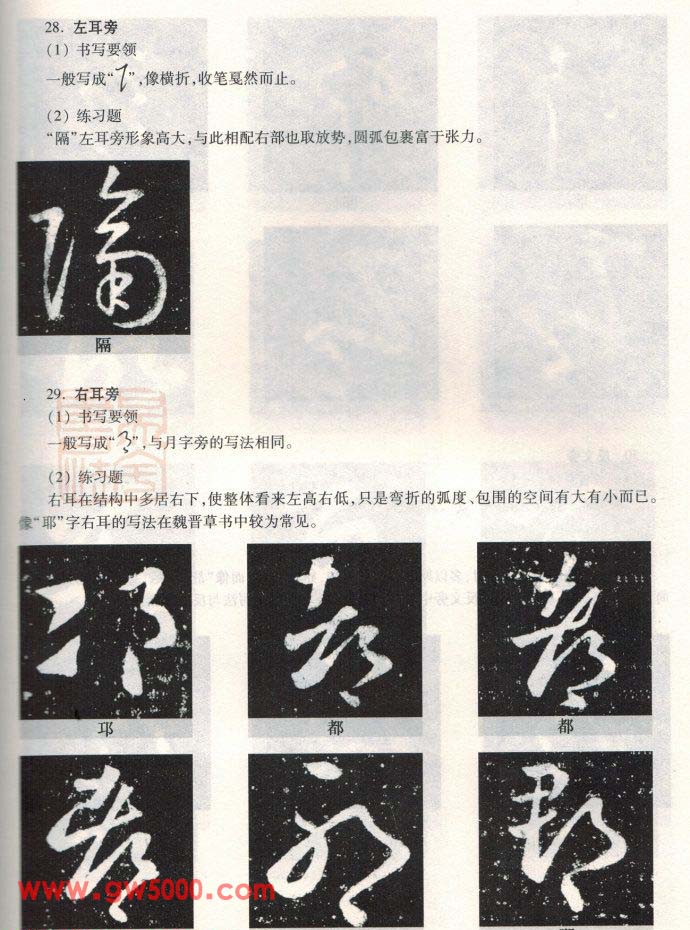 28. 左耳旁
(1) 书写要领
一般写成“”,像横折,收笔戛然而止。
(2) 练习题
“隔”左耳旁形象高大,与此相配右部也取放势,圆弧包裹富于张力。
隔
29. 右耳旁
(1) 书写要领
一般写成“”,与月字旁的写法相同。
(2) 练习题
右耳在结构中多居右下,使整体看来左高右低,只是弯折的弧度、包围的空间有大有小而已。
像“耶”字右耳的写法在魏晋草书中较为常见。
邛 都 都
www.gw5000.com